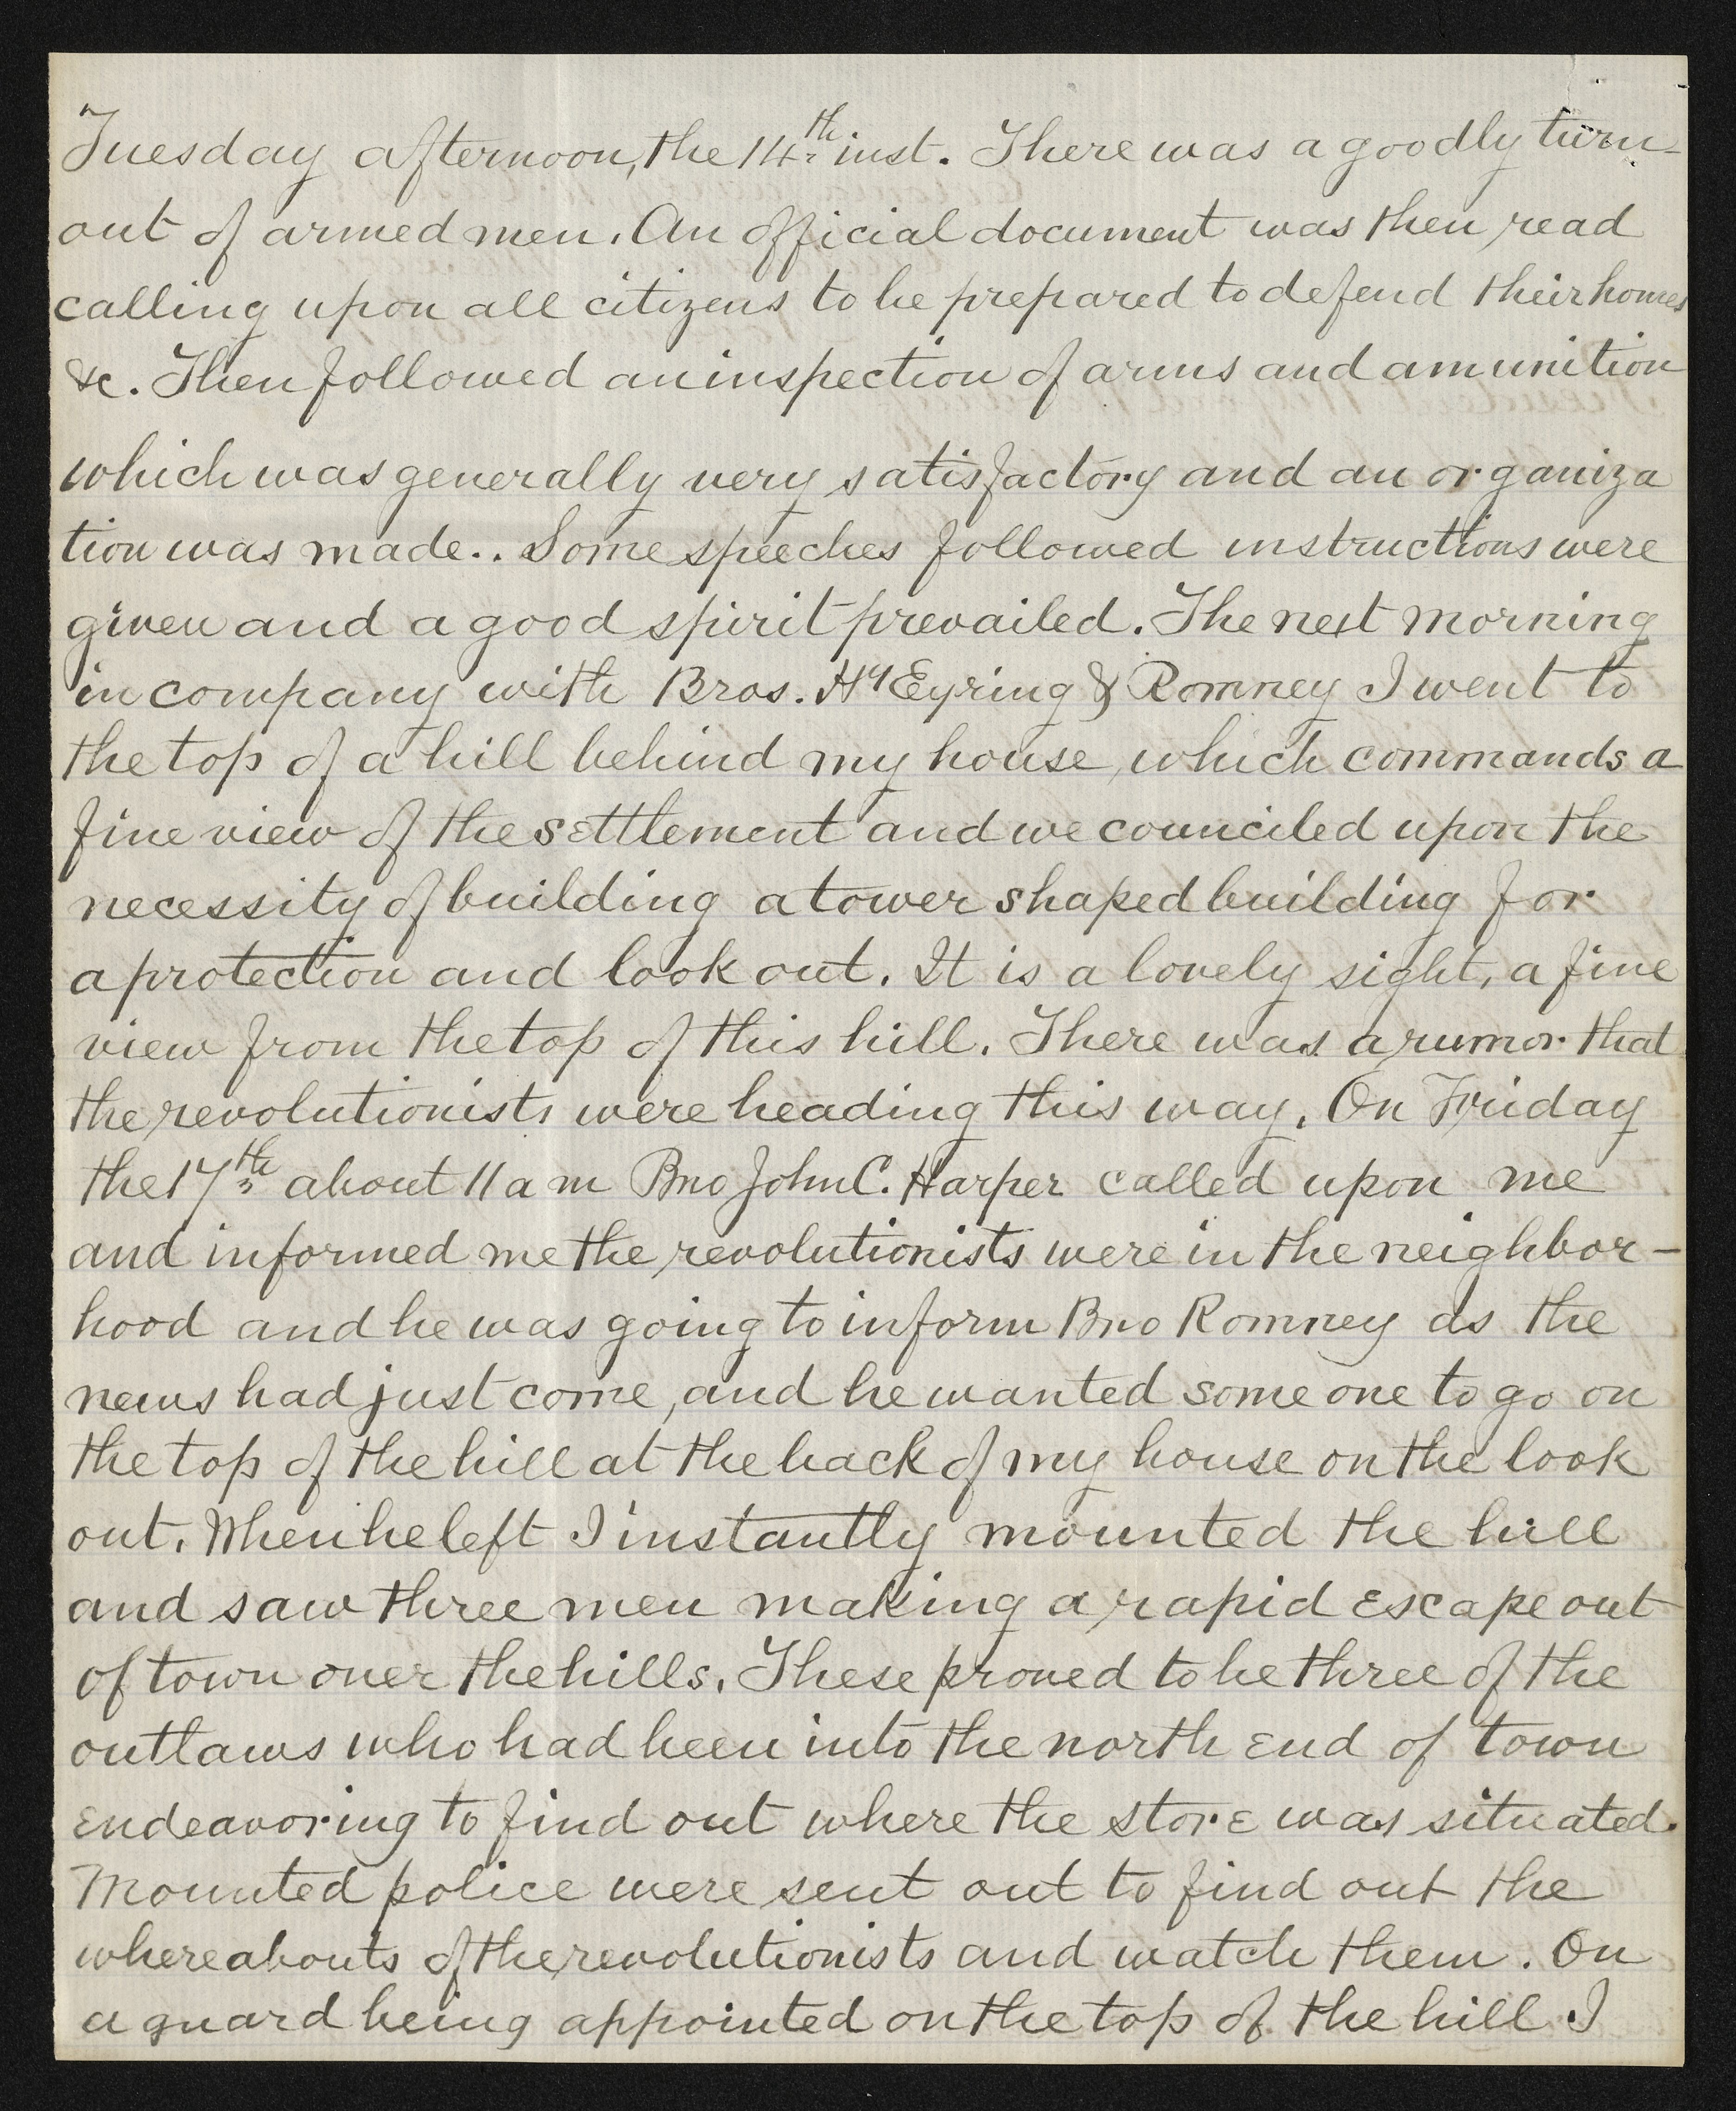 Tuesday afternoon, the 14th inst. There was a goodly turn-
out of armed men. An official document was then read
calling upon all citizens to be prepared to defend their homes
&c. Then followed an inspection of arms and amunition
which was generally very satisfactory and an organiza
tion was made.. Some speeches followed instructions were
given and a good spirit prevailed. The next morning
in company with Bros. Hy Eyring & Romney I went to
the top of a hill behind my house, which commands a
fine view of the settlement and we counciled upon the
necessity of building a tower shaped building for
a protection and look out. It is a lovely sight, a fine
view from the top of this hill. There was a rumor that
the revolutionists were heading this way. On Friday
the 17th about 11 a m Bro John C. Harper called upon me
and informed me the revolutionists were in the neighbor-
hood and he was going to inform Bro Romney as the
news had just come, and he wanted some one to go on
the top of the hill at the back of my house on the look
out. When he left I instantly mounted the hill
and saw three men making a rapid escape out
of town over the hills. These proved to be three of the
outlaws who had been into the north end of town
endeavoring to find out where the store was situated.
Mounted police were sent out to find out the
whereabouts of the revolutionists and watch them. On
a guard being appointed on the top of the hill I